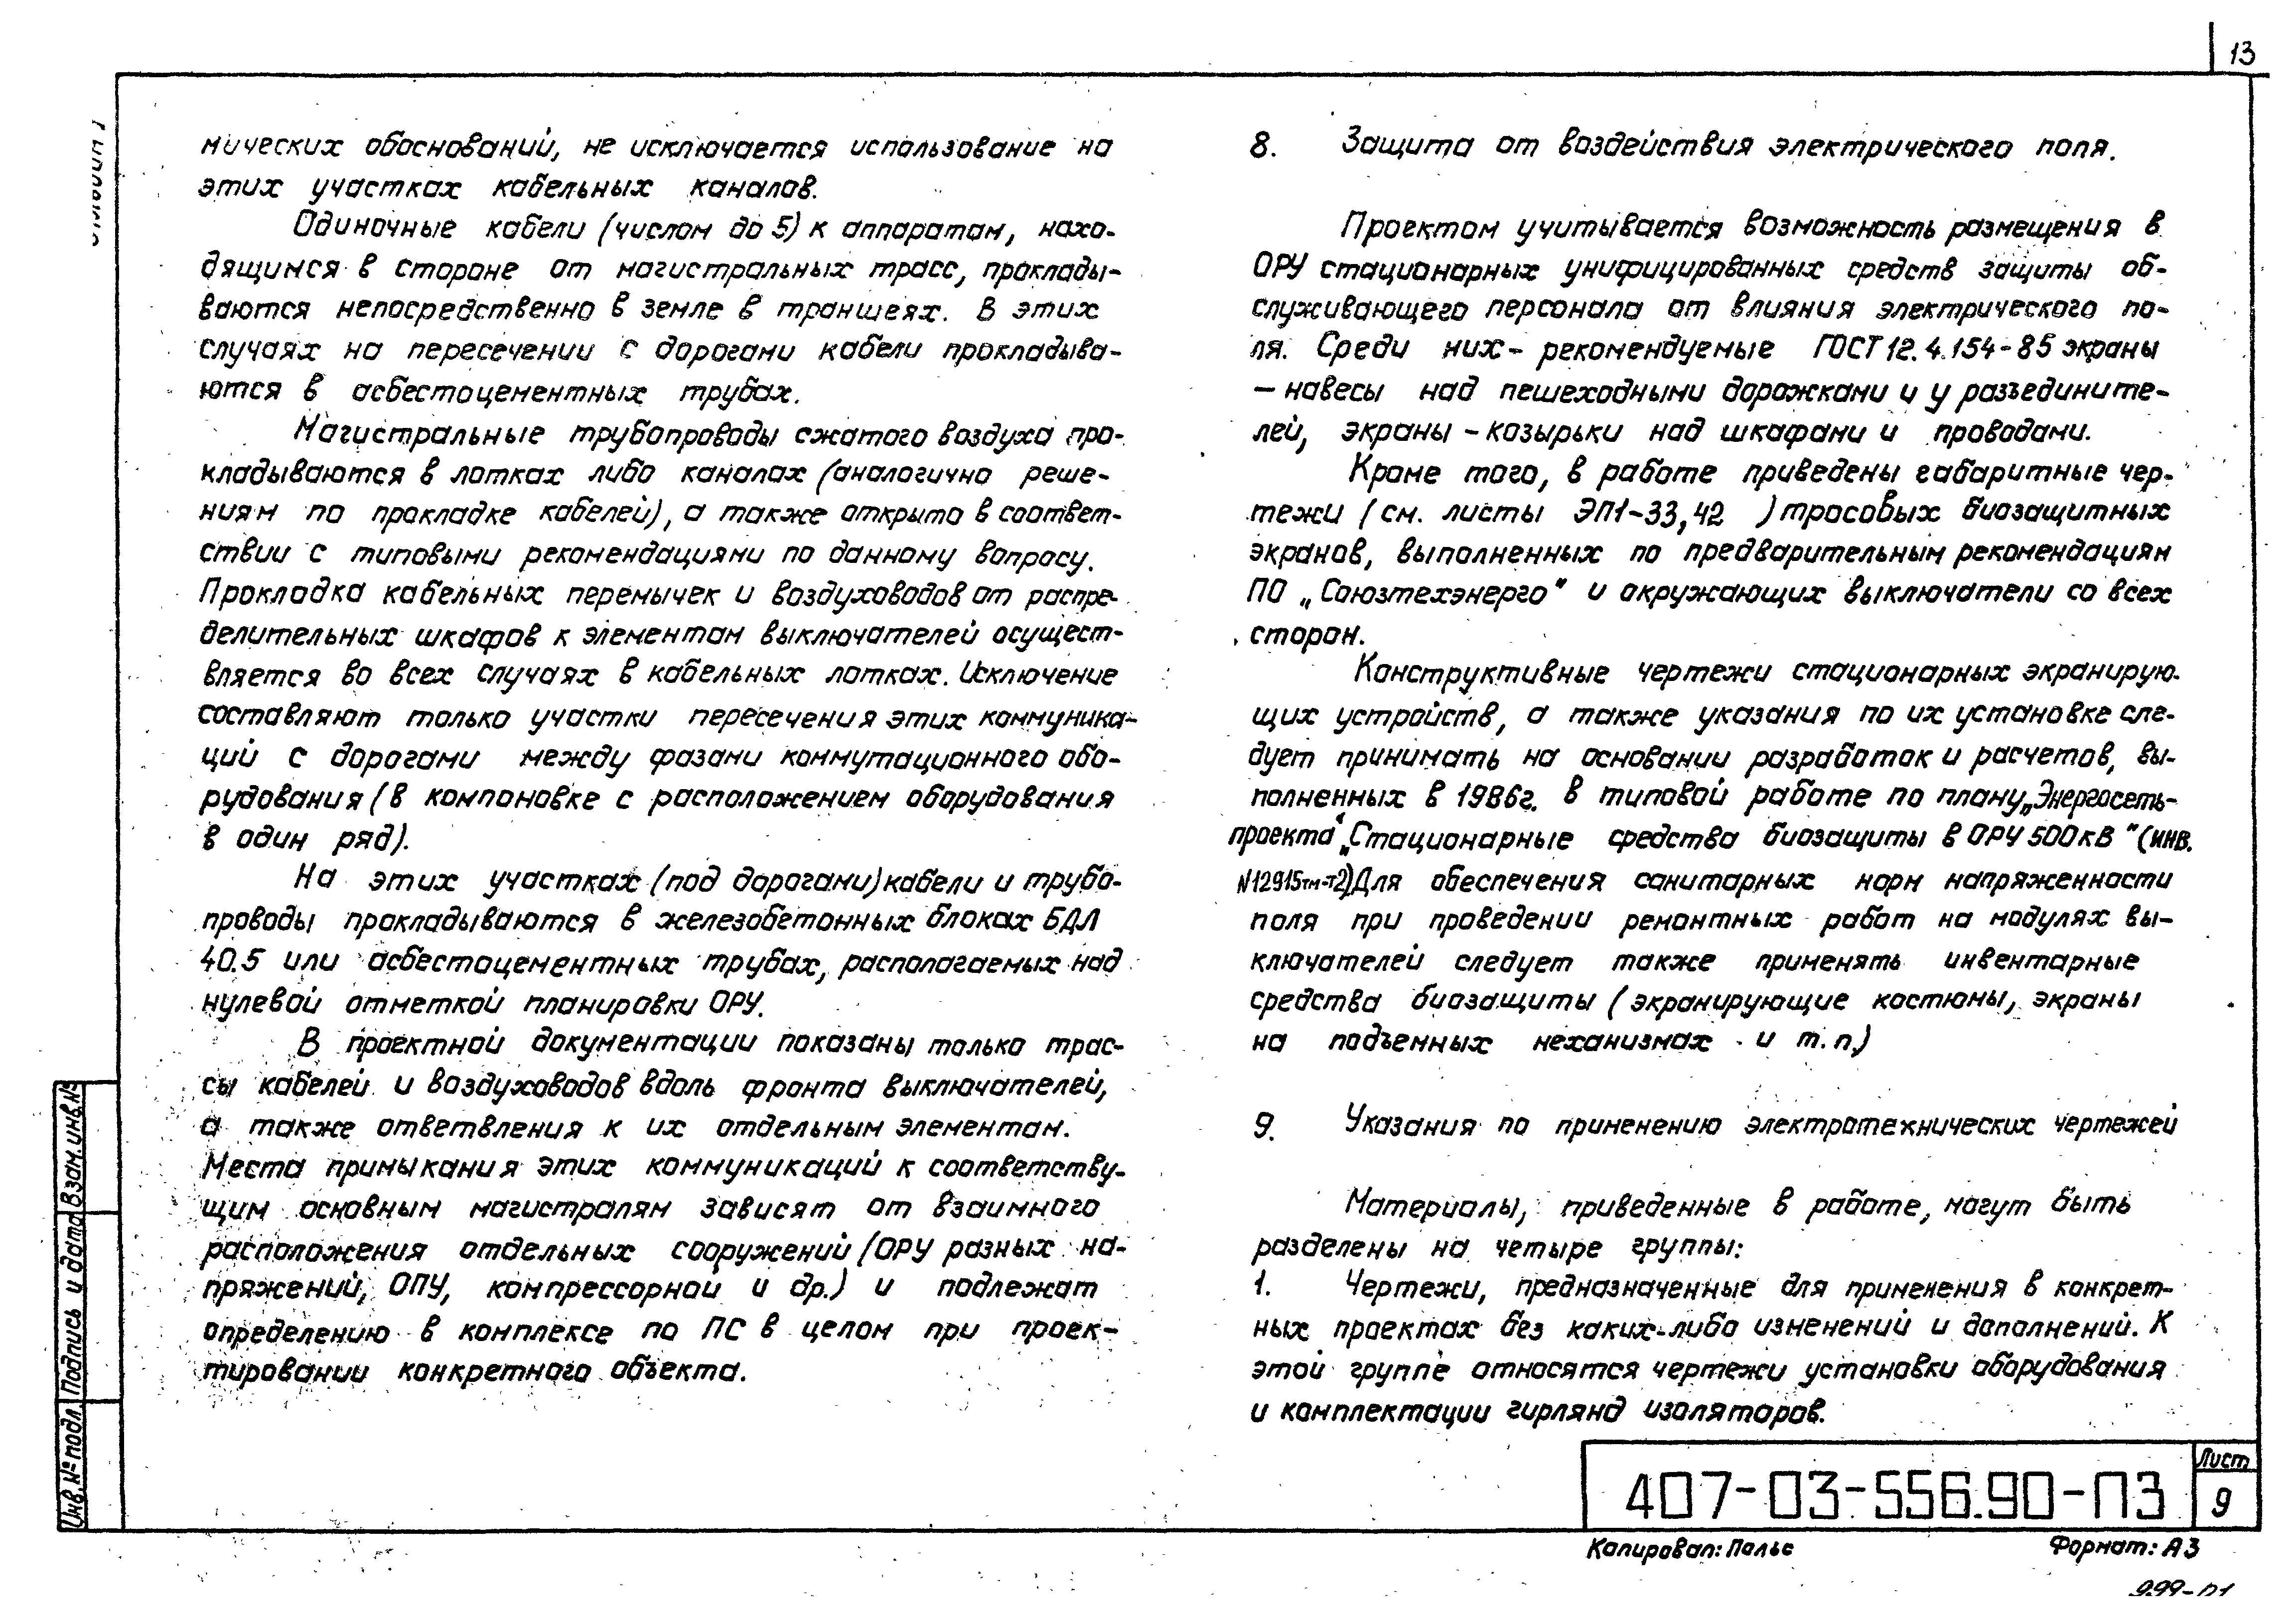 13
мических обоснований, не исключается использование на
этих участках кабельных каналов.
Одиночные кабели (числом до 5) к аппаратам, нахо-
дящимся в стороне от магистральных трасс, проклады-
ваются непосредственно в земле в траншеях. В этих
случаях на пересечении с дорогами кабели прокладыва-
ются в асбестоцементных трубах.
Магистральные трубопроводы сжатого воздуха про-
кладываются в лотках либо каналах (аналогично реше-
ниям по прокладке кабелей), а также открыто в соответ-
ствии с типовыми рекомендациями по данному вопросу.
Прокладка кабельных перемычек и воздуховодов от распре-
делительных шкафов к элементам выключателей осущест-
вляется во всех случаях в кабельных лотках. Исключение
составляют только участки пересечения этих коммуника-
ций с дорогами между фазами коммутационного обо-
рудования (в компоновке с расположением оборудования
в один ряд).
На этих участках (под дорогами) кабели и трубо-
проводы прокладываются в железобетонных блоках БДЛ
40.5 или асбестоцементных трубах, располагаемых над
нулевой отметкой планировки ОРУ.
В проектной документации показаны только трас-
сы кабелей и воздуховодов вдоль фронта выключателей,
а также ответвления к их отдельным элементам.
Места примыкания этих коммуникаций к соответству-
щим основным магистралям зависят от взаимного
расположения отдельных сооружений (ОРУ разных на-
пряжений, ОПУ, компрессорной и др.) и подлежат
определению в комплексе по ПС в целом при проек-
тировании конкретного объекта.
8. Защита от воздействия электрического поля.
Проектом учитывается возможность размещения в
ОРУ стационарных унифицированных средств защиты об-
служивающего персонала от влияния электрического по-
ля. Среди них - рекомендуемые ГОСТ 12.4.154-85 экраны
- навесы над пешеходными дорожками и у разъедините-
лей, экраны - козырьки над шкафами и проводами.
Кроме того, в работе приведены габаритные чер-
тежи (см. листы ЭП1-33,42 ) тросовых биозащитных
экранов, выполненных по предварительным рекомендациям
ПО „Союзтехэнерго" и окружающих выключатели со всех
сторон.
Конструктивные чертежи стационарных экранирую-
щих устройств, а также указания по их установке сле-
дует принимать на основании разработок и расчетов, вы-
полненных в 1986г. в типовой работе по плану „Энергосеть-
проекта" „Стационарные средства биозащиты в ОРУ 500кВ" (инв.
N12915тм-т2) Для обеспечения санитарных норм напряженности
поля при проведении ремонтных работ на модулях вы-
ключателей следует также применять инвентарные
средства биозащиты (экранирующие костюмы, экраны
на подъемных механизмах и т.п.)
9. Указания по применению электротехнических чертежей
Материалы, приведенные в работе, могут быть
разделены на четыре группы:
1. Чертежи, предназначенные для применения в конкрет-
ных проектах без каких-либо изменений и дополнений. К
этой группе относятся чертежи установки оборудования
и комплектации гирлянд изоляторов.
Инв.№подл. Подпись и дата Взам.инв.№
407-03-556.90-ПЗ
Лист
9
Копировал: Палье Формат: А3